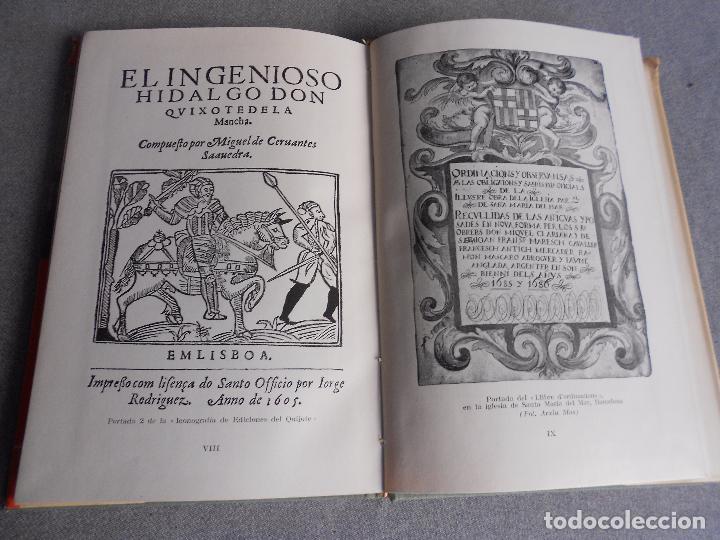 EL INGENIOSO
HIDALGO DON
QVIXOTE DE LA
Mancha.
Compueſto por Miguel de Ceruantes
Saauedra.
EM LISBOA.
Impreſſo com liſença do Santo Officio por Iorge
Rodriguez. Anno de 1605.
Portada 2 de la «Iconografía de Ediciones del Quijote»
VIII
ORDINACIONS Y OBSERVANSAS
LAS OBLIGATIONS Y OFICIALS
DE LA
ILLVSTRE OBRA DE LA IGLESIA
DE SANTA MARIA DEL MAR.
RECVLLIDAS DE LAS ANTIGVAS Y PO
SADES EN NOVA FORMA PER LOS S RS
OBRERS DON MIQVEL CLARIANA DE
FRANSᶜᴴ MARESCH CAVALLER
FRANCESCH ANTICH MERCADER RA
MON MASCARO ADROGVER Y IAVME
ANGLADA ARGENTER EN SON
BIENNI DELS ANYS
1685 Y 1686
Portada del «Llibre d'ordinacions»,
en la iglesia de Santa María del Mar, Barcelona
(Fot. Arxiu Mas)
IX
todocoleccion
todocoleccion.net